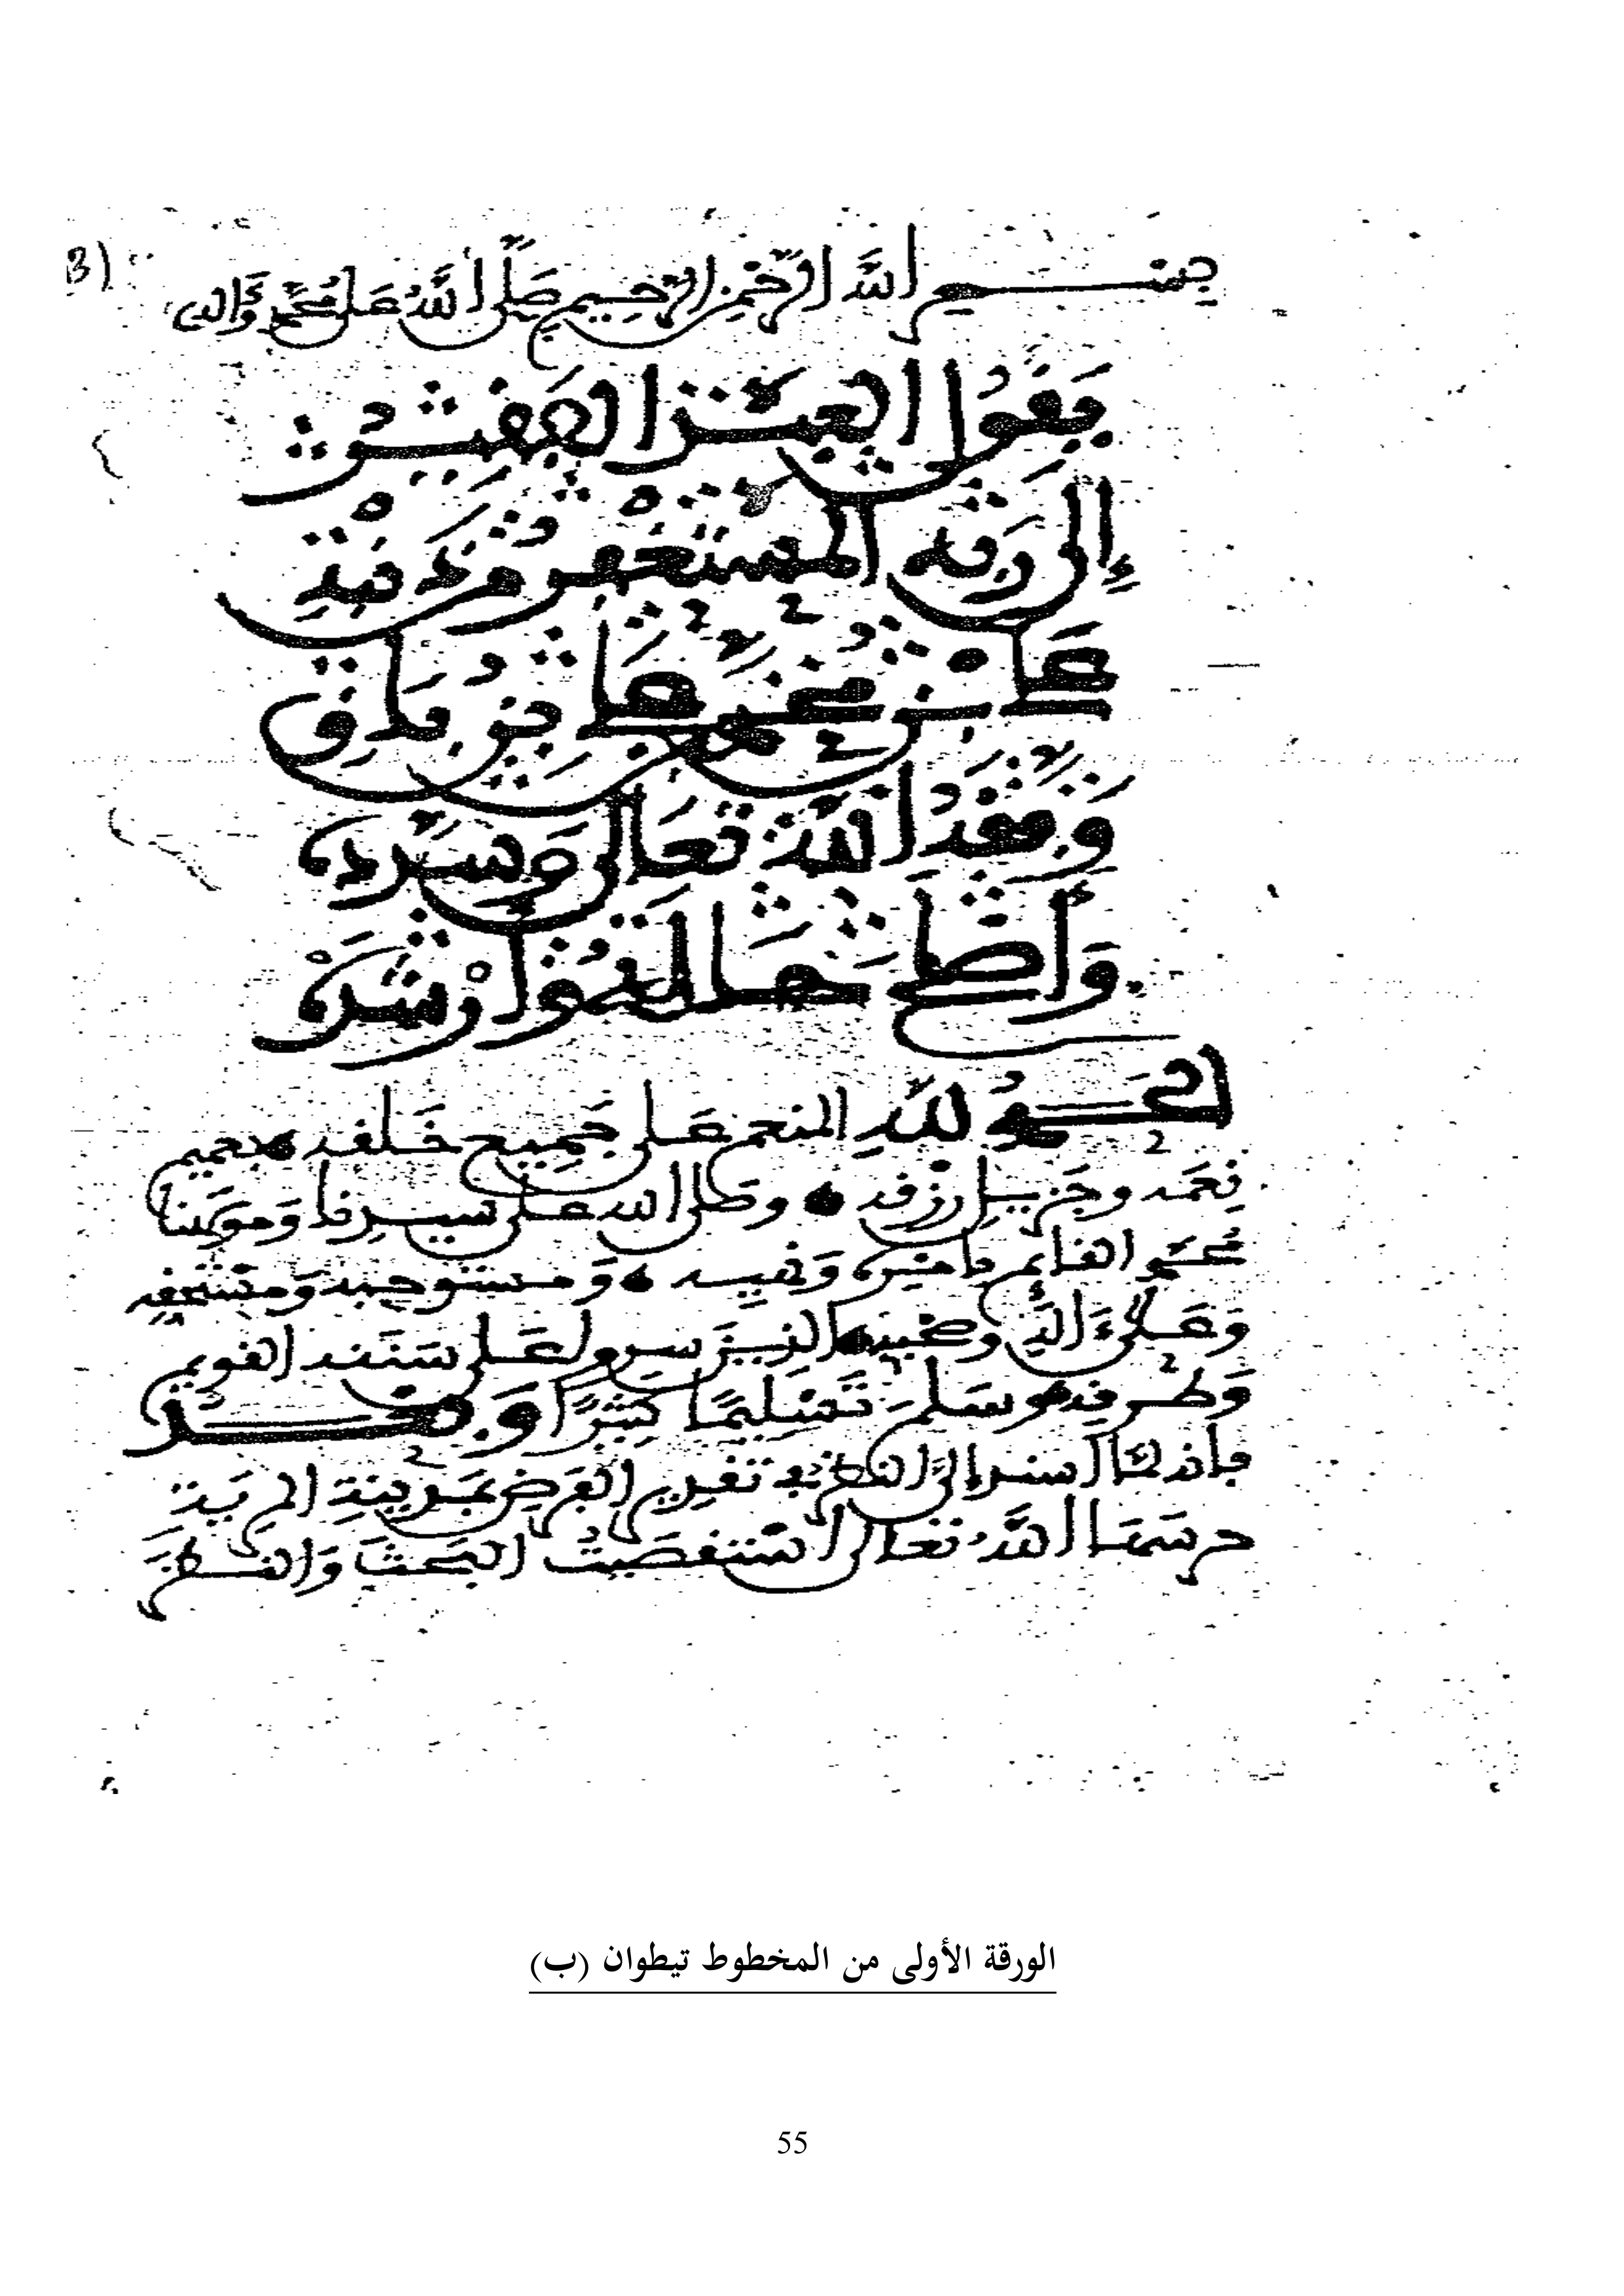 B)
بســـم الله الرحمن الرحيم صلى الله على محمد وءاله
يقول العبد الفقير
إلى ربه المستغفر من ذنبه
علي بن محمد علي بن باق
وفقه الله تعالى وسدده
وأصلح حاله وأرشده
الحمد لله المنعم على جميع خلقه بعميم
نعمه وجزيل رزقه وصلى الله على سيدنا ومولانا
محمد القائم بأمره ونهيه ومستوجبه ومستحقه
وعلى ءاله وصحبه الذين سروا على سننه القويم
وطرقه وسلم تسليما كثيرا وبعد
فإنه لما أسند إلي النظر في تقرير الفرض بمدينة المرية
حرسها الله تعالى استقصيت البحث والنظر
الورقة الأولى من المخطوط تيطوان (ب)
55